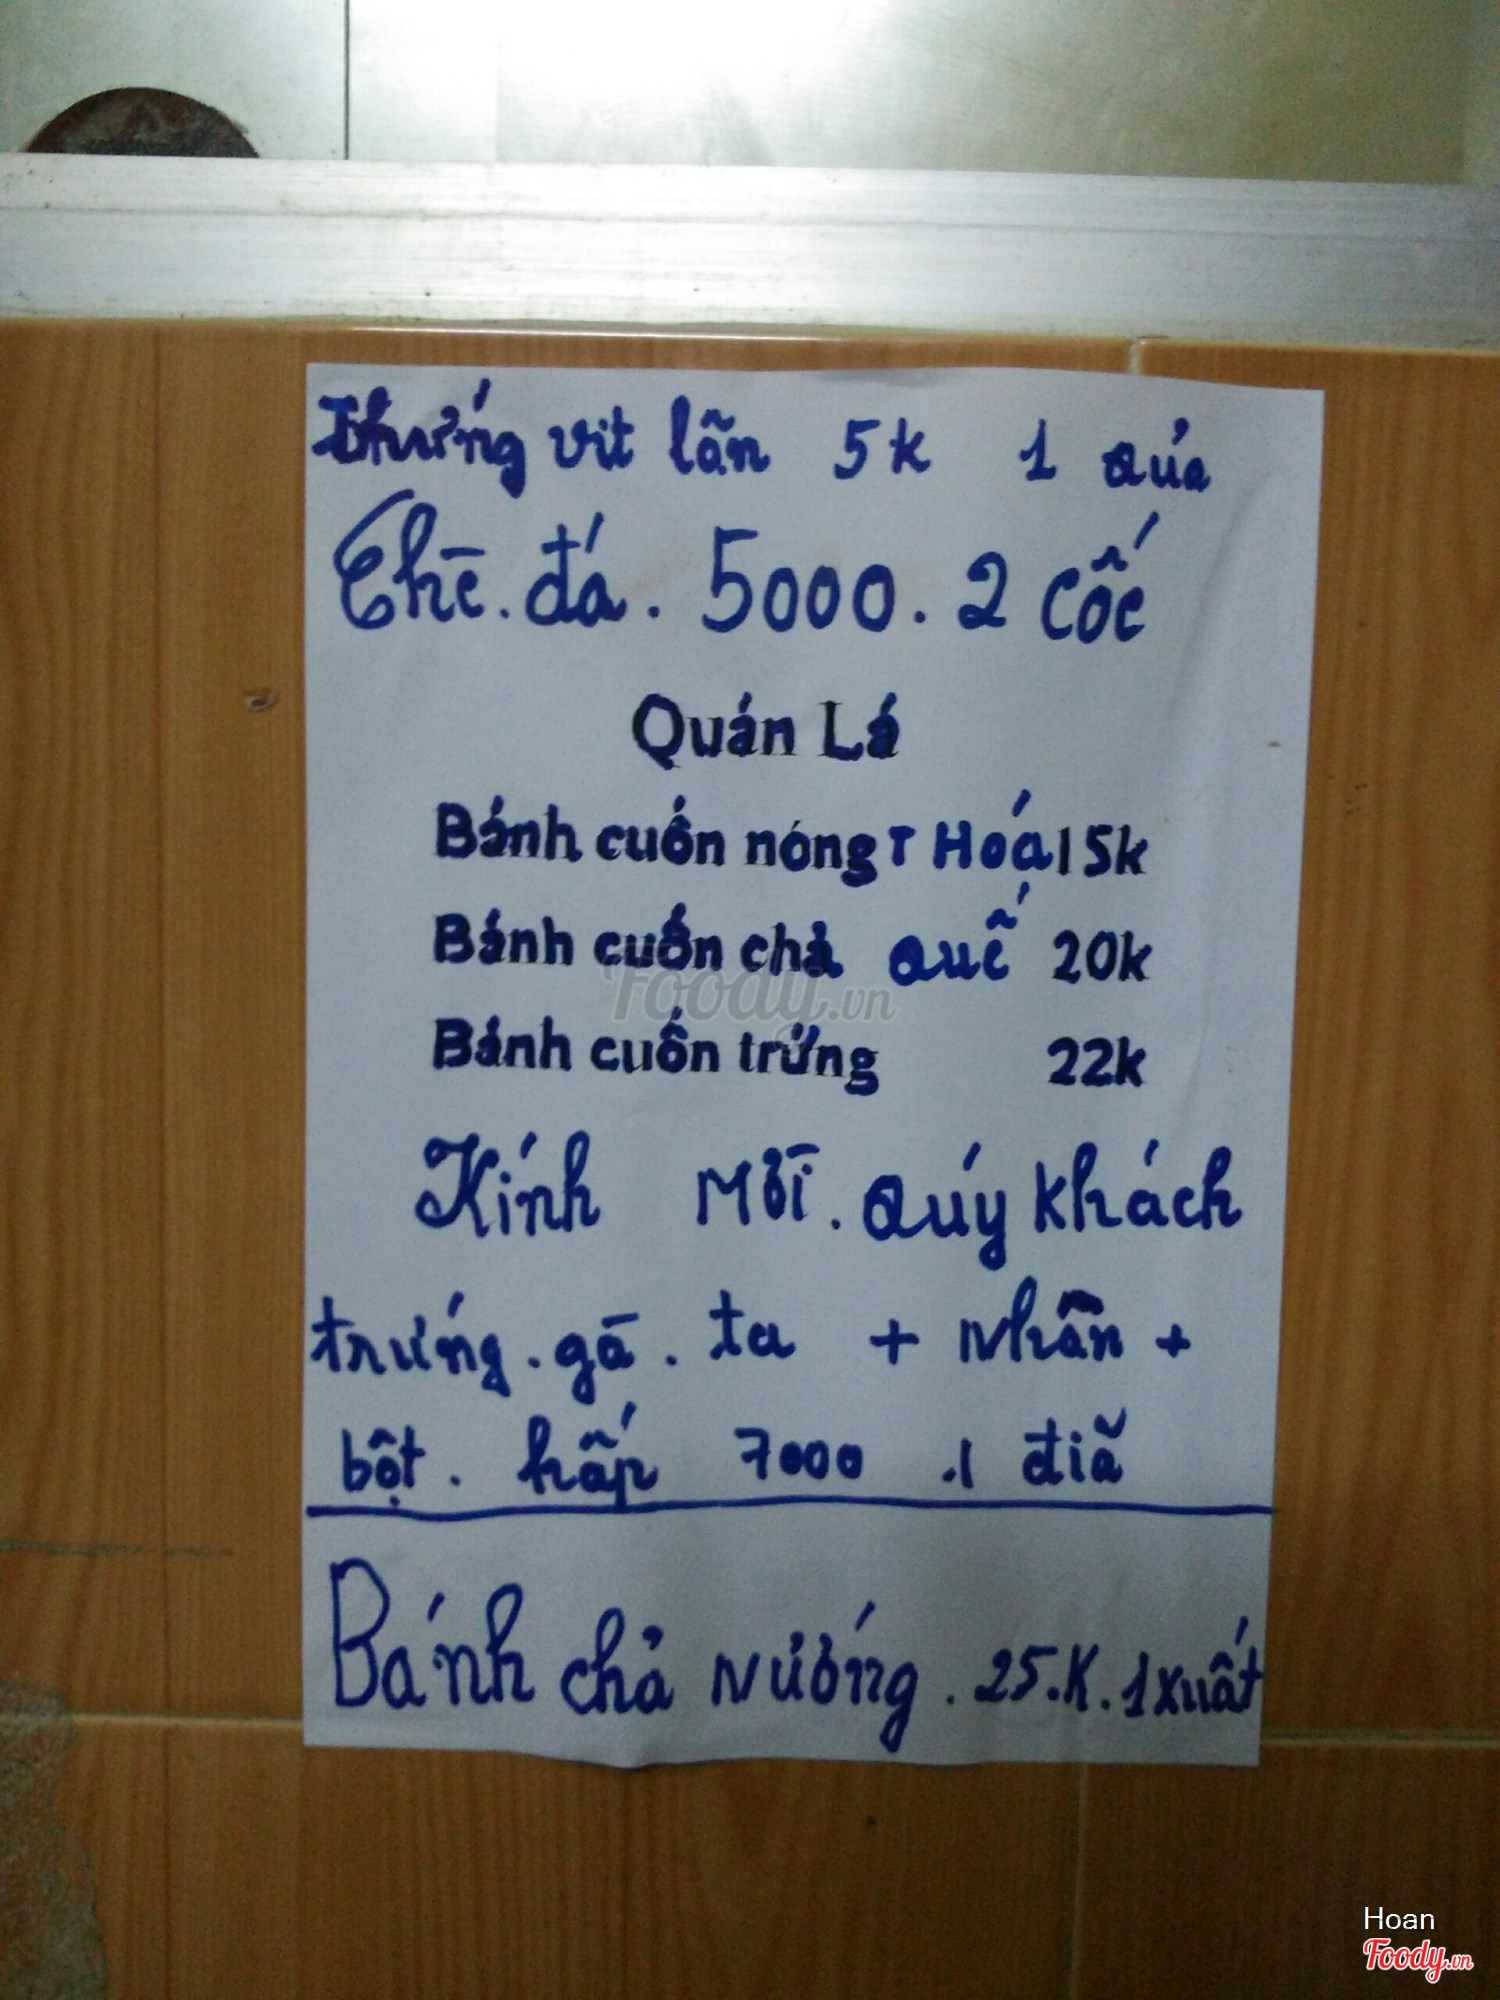 trứng vịt lãn 5k 1 qủa
Chè. đá. 5000. 2 cốc
Quán Lá
Bánh cuốn nóng T Hoá 15k
Bánh cuốn chả quế 20k
Foody.vn
Bánh cuốn trứng 22k
Kính Mời. quý khách
trứng. gà. ta + Nhân +
bột. hấp 7000 .1 điã
Bánh chả Nướng. 25.K. 1 xuất
Hoan
Foody.vn